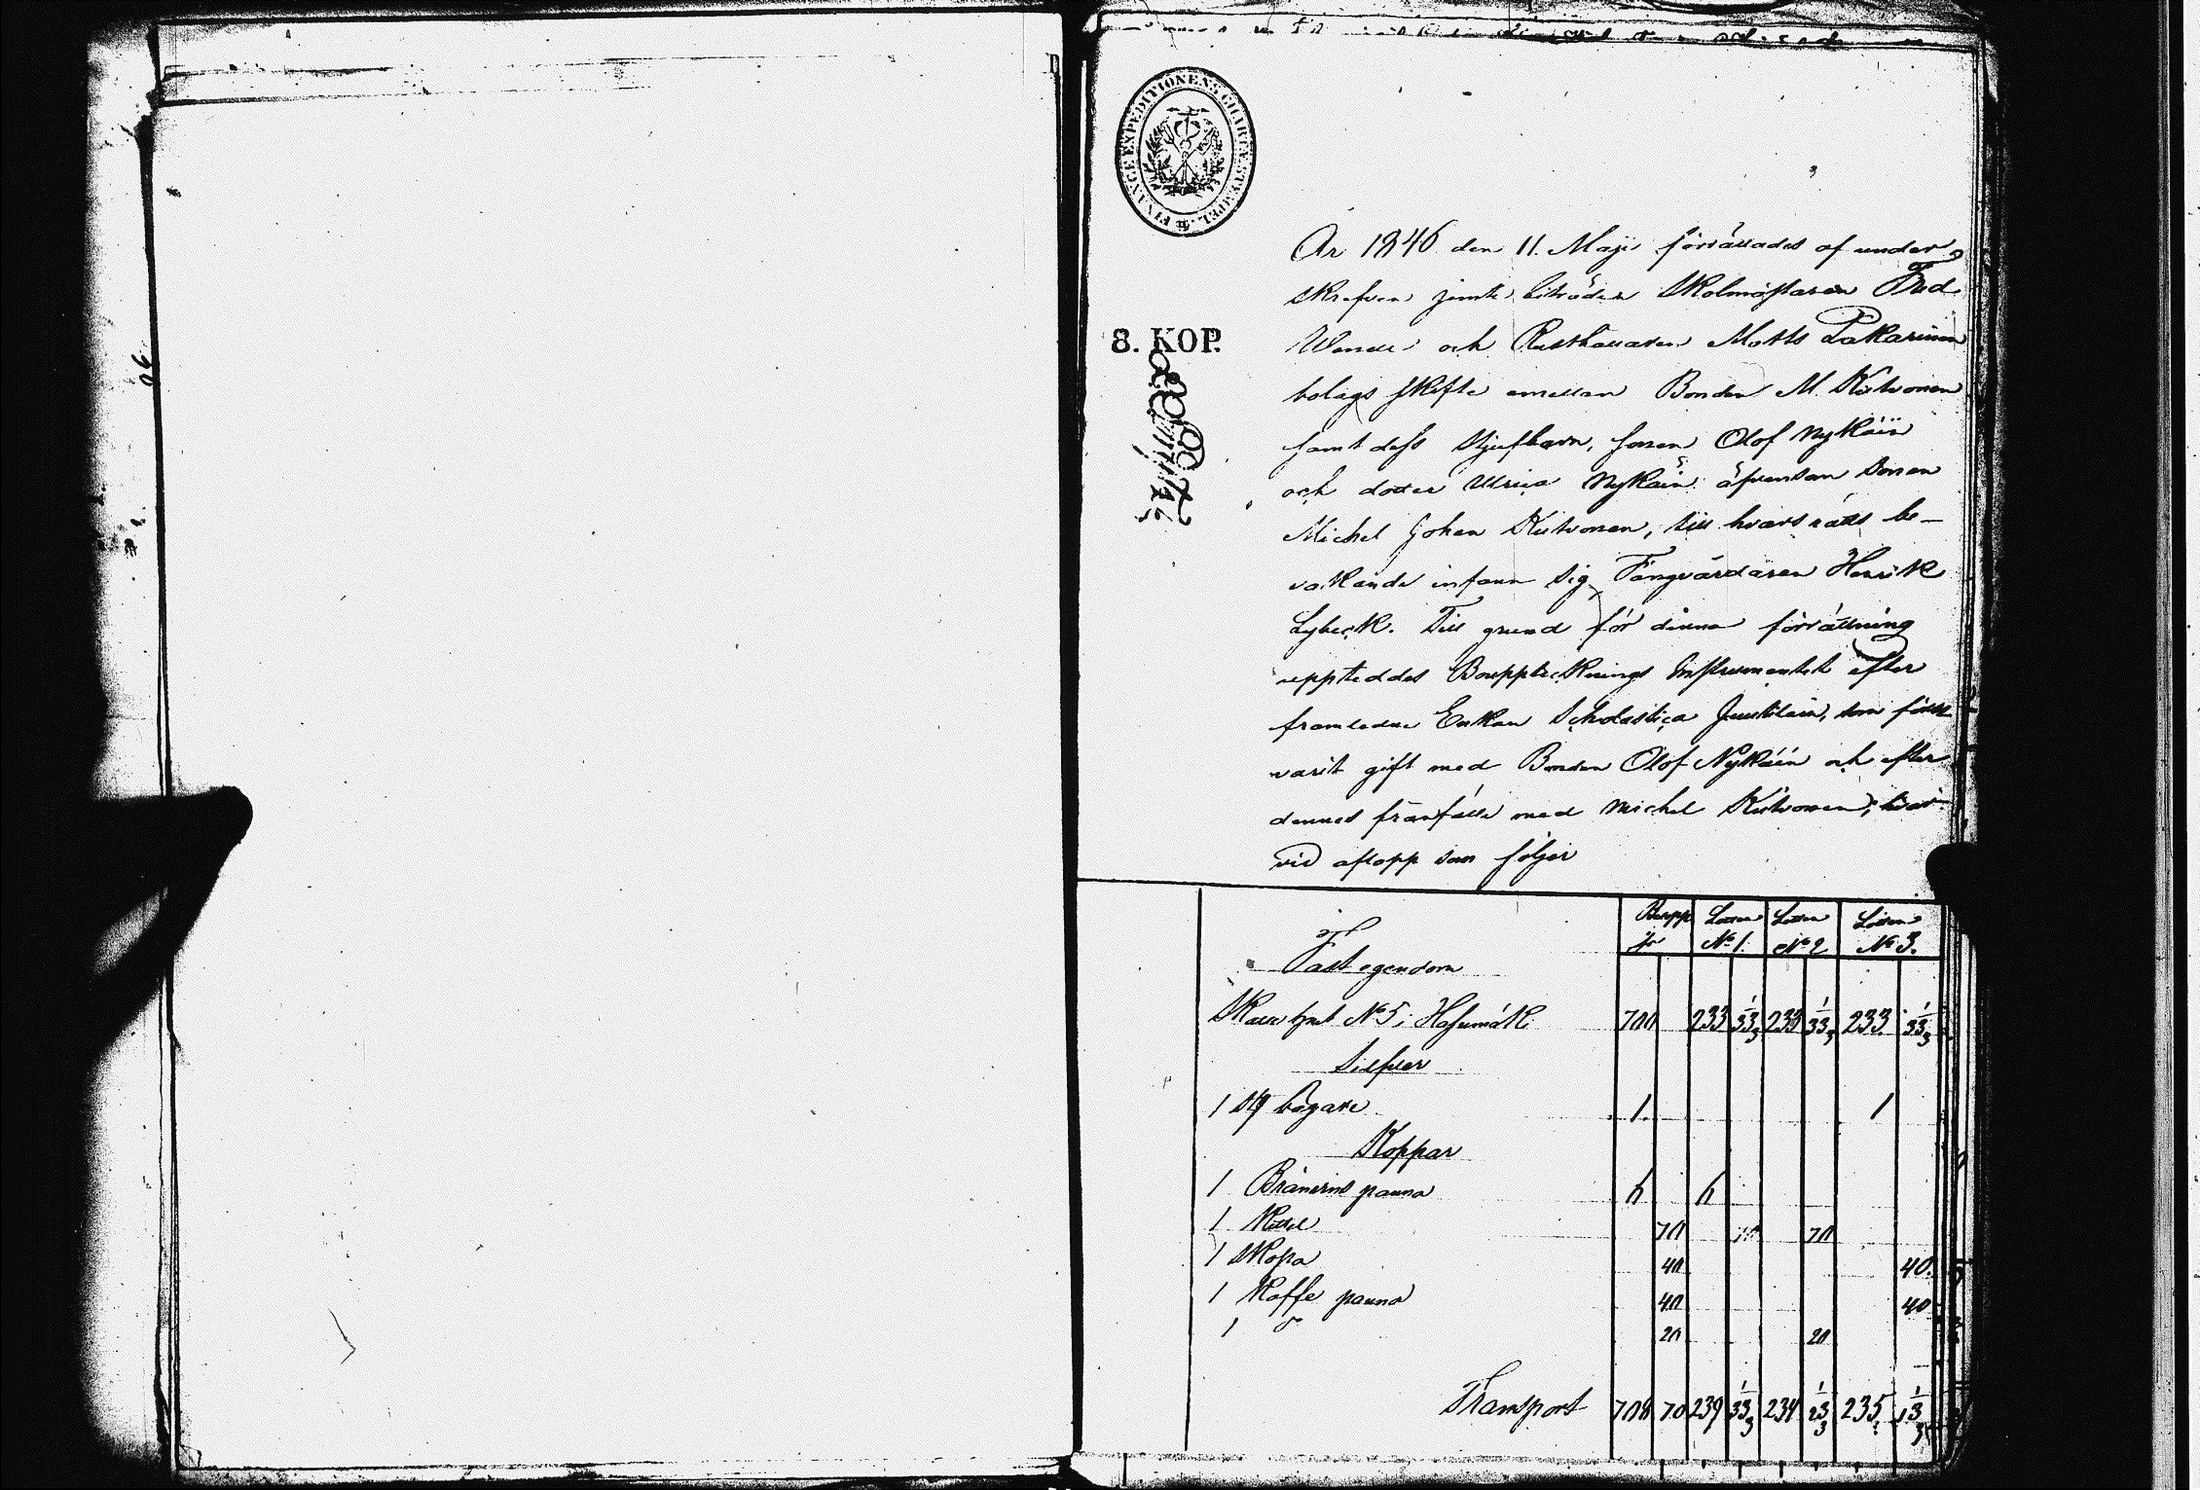 FINANCE EXPEDITIONENS CHARTÆ STEMPEL.
8. KOP.
År 1846 den 11. Maji förrättades af under
skrefven jemte biträden Skolmästaren Fred
och Rusthållaren Matts Pakarinen
bolags skifte emellan Bonden M. Kutvonen
samt dess Stjufbarn, sonen Olof Nykäin
och dotter Ulrica Nykäin äfvensom Sonen
Michel Johan Kutvonen, till hvars rätts be-
vakande infann sig Fångvårdaren Henrik
Lybeck. Till grund för denna förrättning
uppteddes Bouppteknings Instrumentet efter
framledne Enkan Scholastica, som förut
varit gift med Bonden Olof Nykäin och efter
dennes frånfälle med Michel Kutvonen; hvar
vid aflopp som följer
Boupp Lotten Lotten Lotten
No 1. No 2 No 3.
Fast egendom
Skatte hnet No 5 i Hasumäki 700 233 33 1/3 233 33 1/3 233 33 1/3
Silfver
1 st bägare 1. 1
Koppar
1 Bränvins panna 6 6
1 Kittel 70 70
1 Skopa 40 40.
1 Kaffe panna 40 40
1 d:o 20 20
Transport 708 70 239 33 1/3 234 23 1/3 235 13 1/3